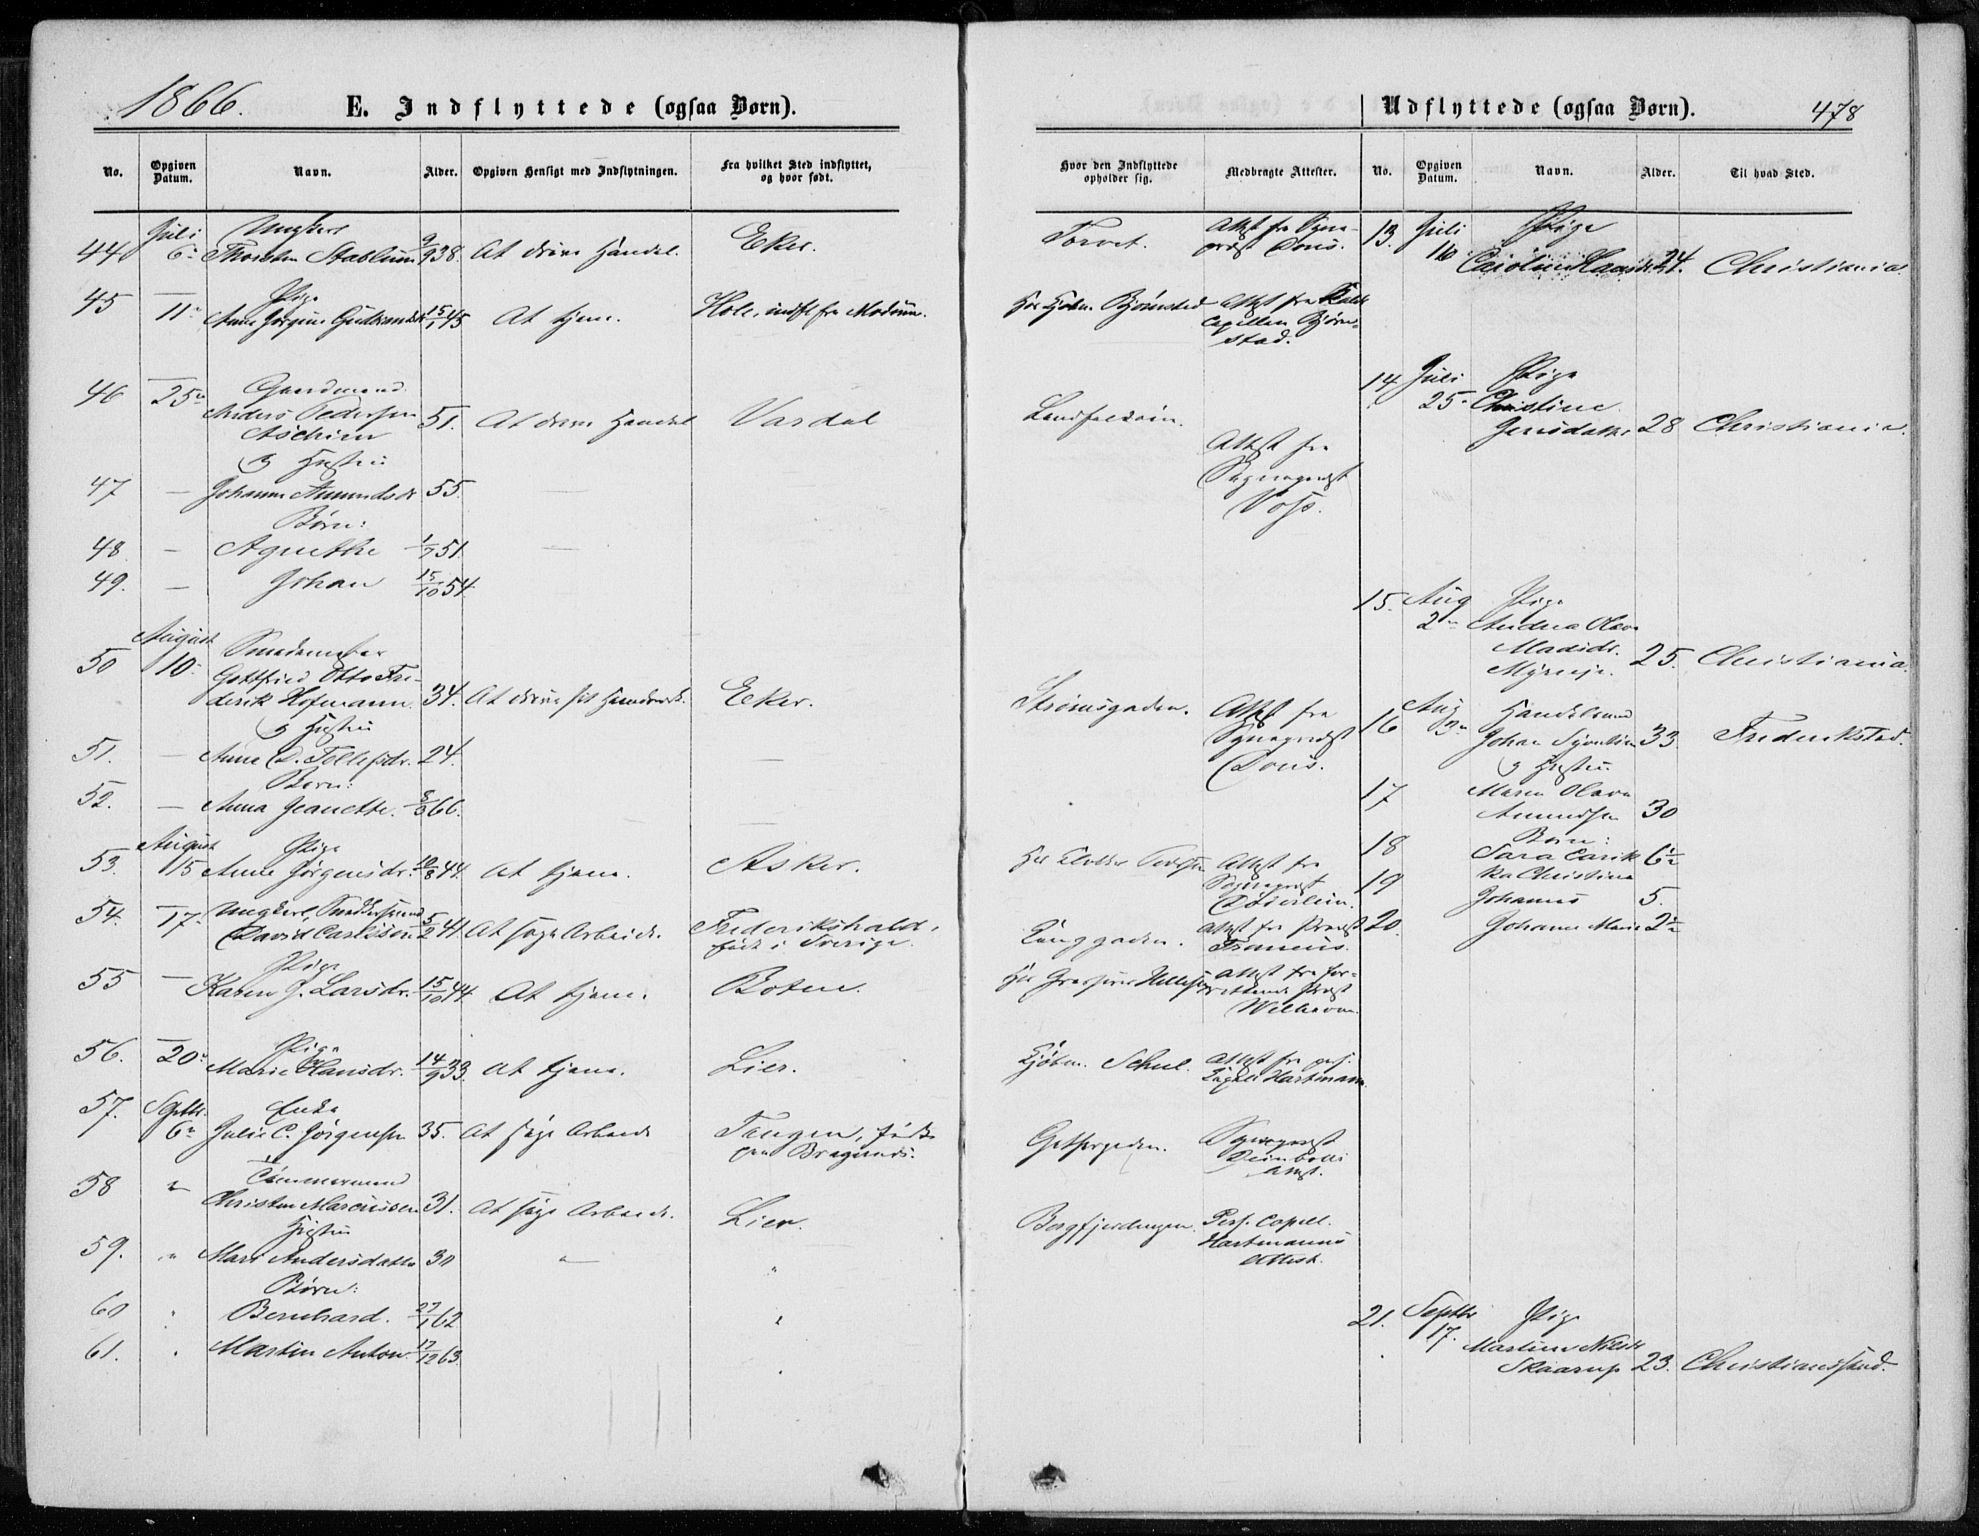 1866.
E. Indflyttede (ogsaa Børn).
No. Opgiven Datum. Navn. Alder. Opgiven Hensigt med Indflytningen. Fra hvilket Sted indflyttet, og hvor født.
44 Juli 6 Ungkarl
Thorsten Stablum 9/9 38. At drive Handel. Eker.
45 — 11 Pige
Anne Jørgine Gulbrandsdr 15/1 45 At tjene. Hole, indfl fra Modum.
46 — 25 Gaardmand
Anders Pedersen
Aschim 51. At drive Handel Vardal
& Hustru
47 — Johanne Amundsdr 55. —
Børn:
48 — Agnethe 1/7 51. —
49. — Johan 15/10 54.
50 August 10 Smedemester
Gottfried Otto Fre-
derik Hofmann 34. At drive sit Haandværk. Eker.
& Hustru
51. — Anne D. Tollefsdr. 24. —
Børn:
52. — Anna Jeanette. 66. —
53. August 15 Pige
Anne Jørgensdr. 44. At tjene. Asker.
54. — 17 Ungkarl, Snedkersvend
David Carlsson 5/2 41 At søge Arbeide. Frederikshald,
født i Sverige.
55 — Pige
Karen J. Larsdr. 15/10 44. At tjene. Boten.
56. — 20 Pige
Marie Hansdr. 14/9 33. At tjene. Lier.
57. Septbr. 6 Enke
Julie C. Jørgensen 35. At søge Arbeide Tangen, født
paa Bragernes.
58 " Tømmermand
Christen Marcussen 31. At søge Arbeide. Lier.
Hustru
59. " Mari Andersdatter 30 " "
Børn:
60 " Bernhard. 27/1 62 "
61. " Martin Anton. 17/12 63. "
Udflyttede (ogsaa Børn). 478
Hvor den Indflyttede opholder sig. Medbragte Attester. No. Opgiven Datum. Navn. Alder. Til hvad Sted.
Torvet. Attest fra Sogne-
præst Dons.
13. Juli 10 Pige
Caroline 24. Christiania.
Hos Kjøbm. Bjørnstad Attest fra
Capellan Bjørn-
stad.
14. Juli 25 Pige
Christine
Jensdatter 28 Christiania.
Landfaldøin.
Attest fra
Sognepræst
Voss.
15. Aug 2 Pige
Andrea Olava
Madsdr.
25. Christiania.
Strømsgaden. Attest fra
Sognepræst
Dons.
16 Aug 3 Handelsmand
Johan 33 Frederikstad.
& Hustru
17 Maren Olava
Amundsen 30
Børn:
18 Sara
Christina 6½
19 Johannes 5.
20. Johanne Marie 2½
Hos Klokker Attest fra
Sognepræst
Døderlein.
Langgaden. Attest fra Præst
Hos Grosserer Attest fra
Præst
Welhaven.
Kjøbm. Schul. Attest fra pers.
Capell. Hartmann.
Sognepræst
Deinbolls
Attest.
Borgfjerdingen. Pers. Capell.
Hartmanns
Attest.
21. Septbr 17. Pige
Martine Nilsdr
Skaarup 23. Christianssand.